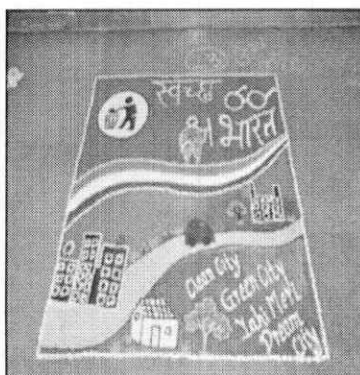 स्वच्छ
भारत
Clean City
Green City
Yahi Meri
Dream
City